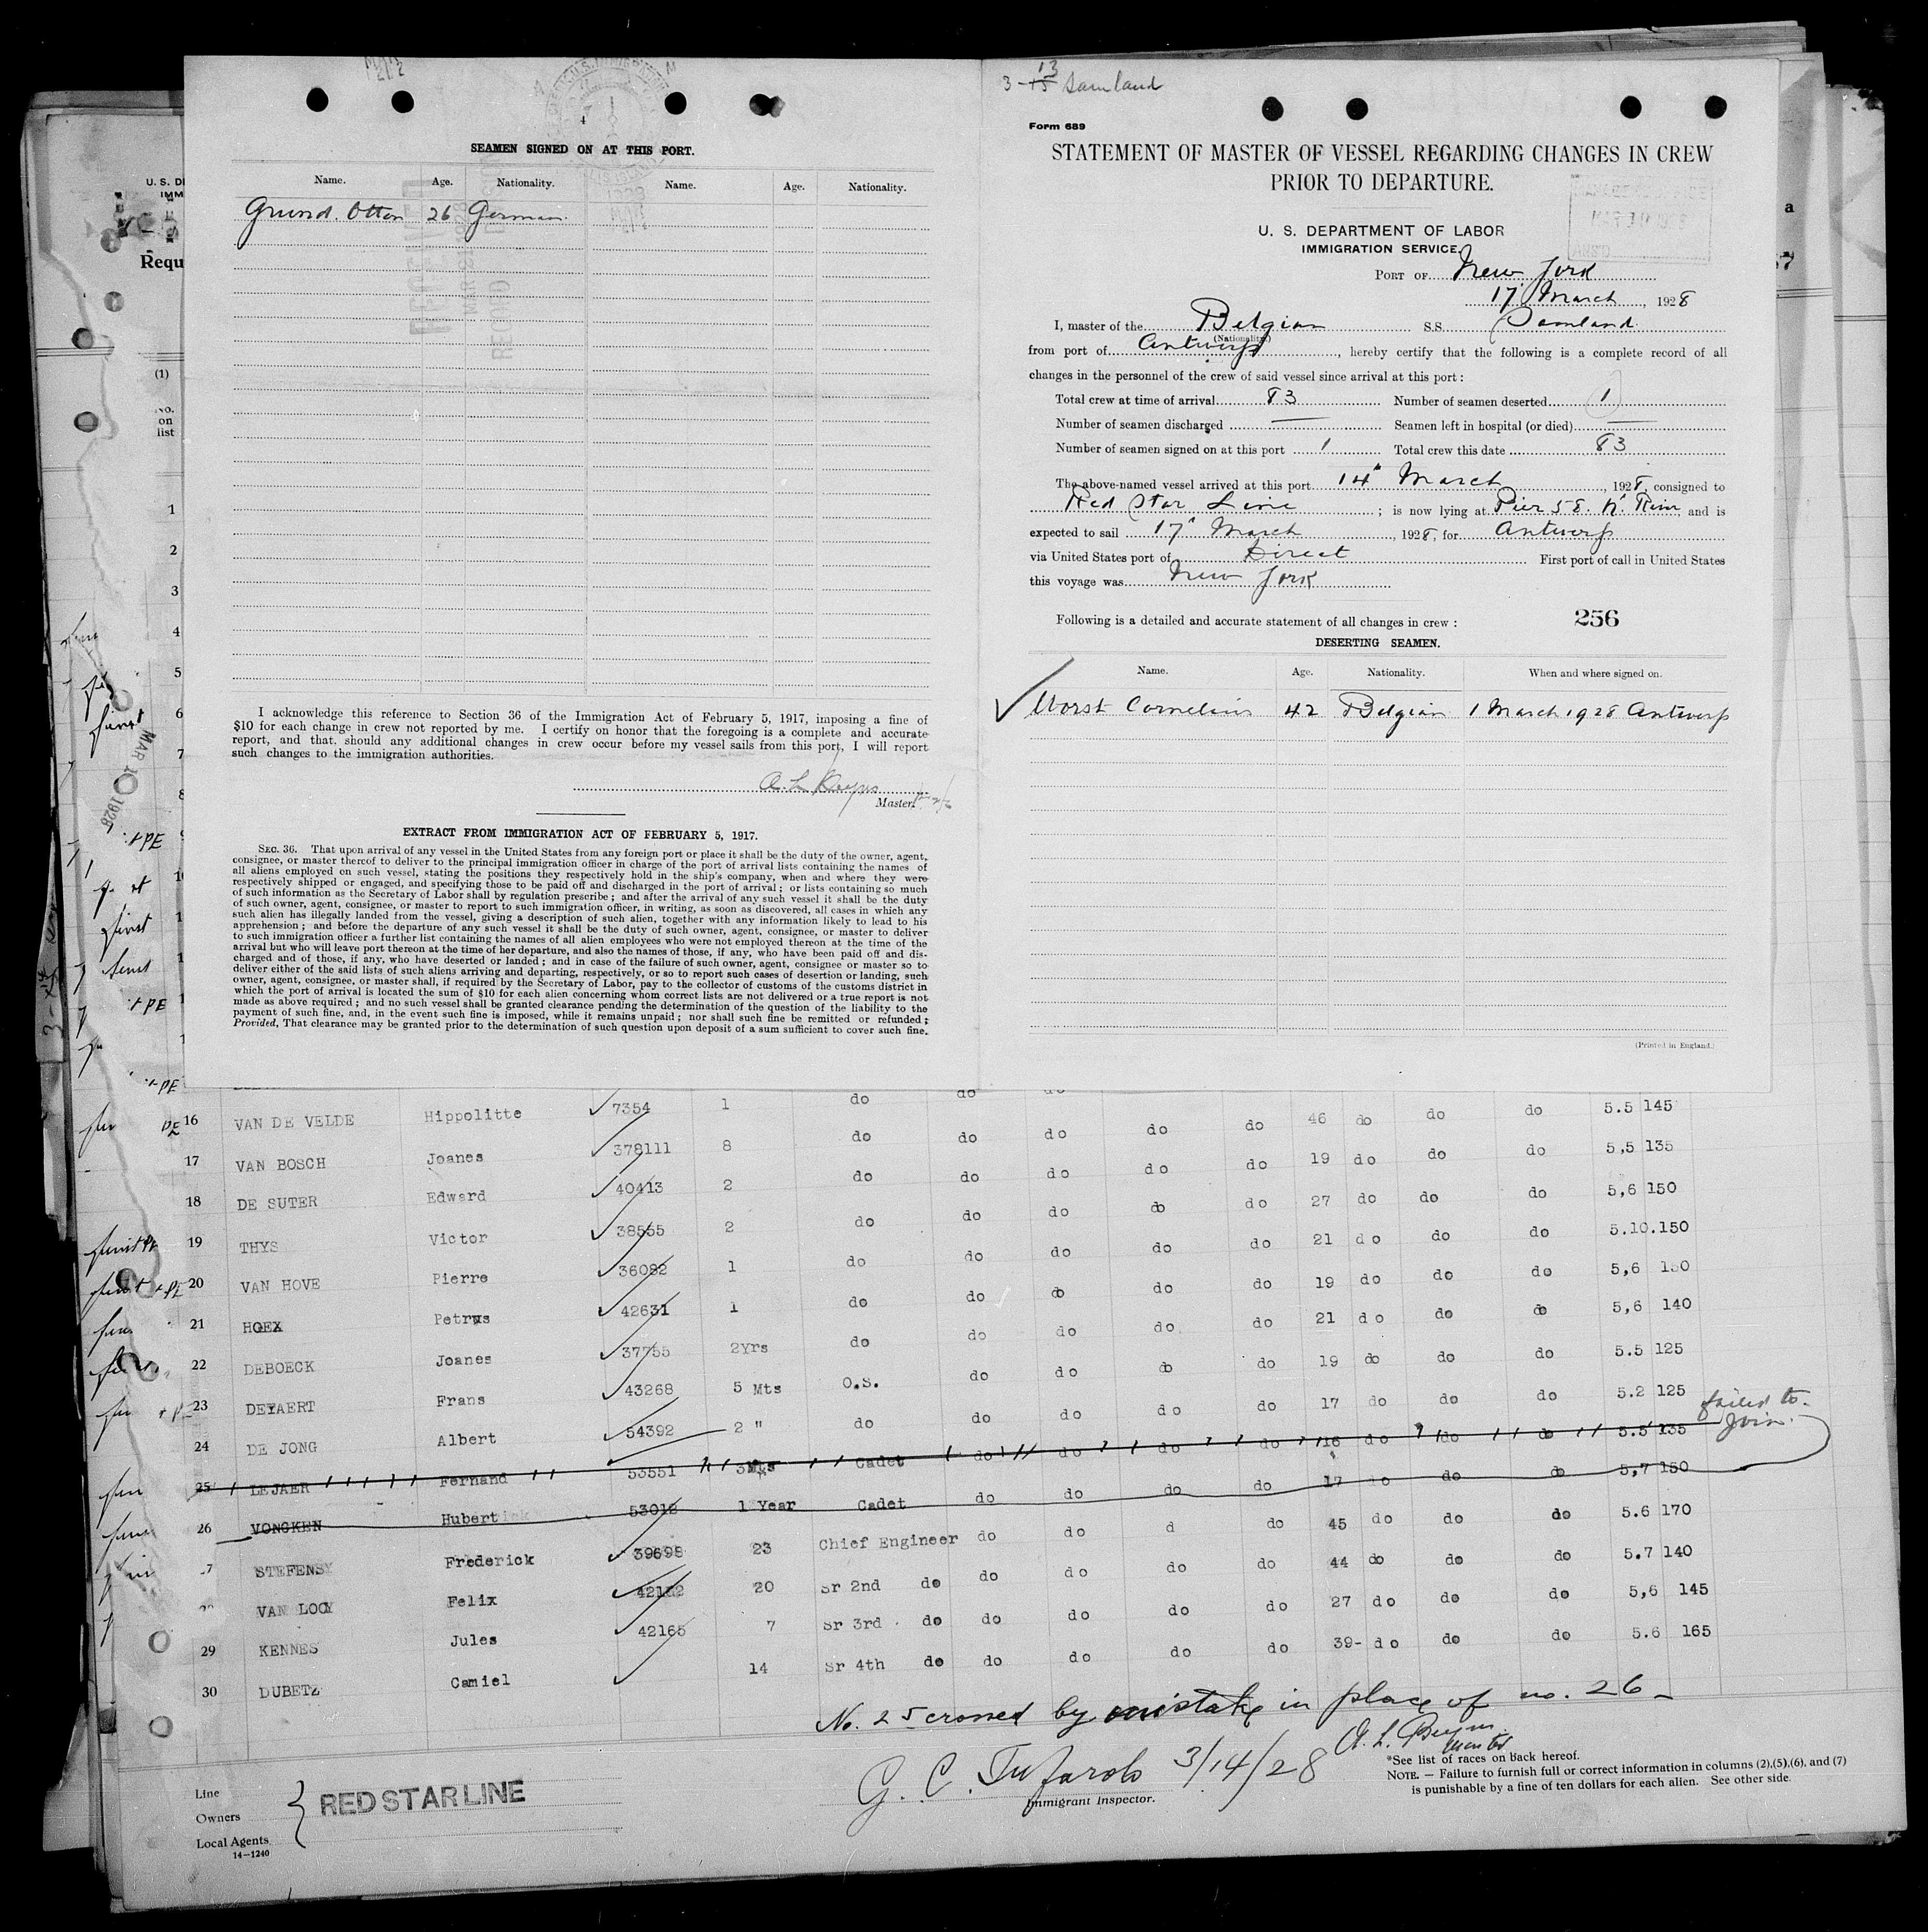 SEAMEN SIGNED ON AT THIS PORT.
Name. Age. Nationality. Name. Age. Nationality.
Grund. Otton 26 German
I acknowledge this reference to Section 36 of the Immigration Act of February 5, 1917, imposing a fine of
$10 for each change in crew not reported by me. I certify on honor that the foregoing is a complete and accurate
report, and that, should any additional changes in crew occur before my vessel sails from this port, I will report
such changes to the immigration authorities.
Master.
EXTRACT FROM IMMIGRATION ACT OF FEBRUARY 5, 1917.
SEC. 36. That upon arrival of any vessel in the United States from any foreign port or place it shall be the duty of the owner, agent,
consignee, or master thereof to deliver to the principal immigration officer in charge of the port of arrival lists containing the names of
all aliens employed on such vessel, stating the positions they respectively hold in the ship's company, when and where they were
respectively shipped or engaged, and specifying those to be paid off and discharged in the port of arrival; or lists containing so much
of such information as the Secretary of Labor shall by regulation prescribe; and after the arrival of any such vessel it shall be the duty
of such owner, agent, consignee, or master to report to such immigration officer, in writing, as soon as discovered, all cases in which any
such alien has illegally landed from the vessel, giving a description of such alien, together with any information likely to lead to his
apprehension; and before the departure of any such vessel it shall be the duty of such owner, agent, consignee, or master to deliver
to such immigration officer a further list containing the names of all alien employees who were not employed thereon at the time of the
arrival but who will leave port thereon at the time of her departure, and also the names of those, if any, who have been paid off and dis-
charged and of those, if any, who have deserted or landed; and in case of the failure of such owner, agent, consignee or master so to
deliver either of the said lists of such aliens arriving and departing, respectively, or so to report such cases of desertion or landing, such
owner, agent, consignee, or master shall, if required by the Secretary of Labor, pay to the collector of customs of the customs district in
which the port of arrival is located the sum of $10 for each alien concerning whom correct lists are not delivered or a true report is not
made as above required; and no such vessel shall be granted clearance pending the determination of the question of the liability to the
payment of such fine, and, in the event such fine is imposed, while it remains unpaid; nor shall such fine be remitted or refunded;
Provided, That clearance may be granted prior to the determination of such question upon deposit of a sum sufficient to cover such fine.
3-13 15 Samland
Form 689
STATEMENT OF MASTER OF VESSEL REGARDING CHANGES IN CREW
PRIOR TO DEPARTURE.
U. S. DEPARTMENT OF LABOR
IMMIGRATION SERVICE
PORT OF New York
17 March, 1928
I, master of the Belgian S.S. Samland
(Nationality)
from port of Antwerp, hereby certify that the following is a complete record of all
changes in the personnel of the crew of said vessel since arrival at this port:
Total crew at time of arrival 83 Number of seamen deserted 1
Number of seamen discharged — Seamen left in hospital (or died) —
Number of seamen signed on at this port 1 Total crew this date 83
The above-named vessel arrived at this port 14" March, 1928, consigned to
Red Star Line; is now lying at Pier 58. N. River, and is
expected to sail 17" March, 1928, for Antwerp
via United States port of Direct First port of call in United States
this voyage was New York
Following is a detailed and accurate statement of all changes in crew: 256
DESERTING SEAMEN.
Name. Age. Nationality. When and where signed on.
Worst Cornelius 42 Belgian 1 March 1928 Antwerp
(Printed in England.)
16 VAN DE VELDE Hippolitte 7354 1 do do do do do 46 do do do 5.5 145
17 VAN BOSCH Joanes 378111 8 do do do do do 19 do do do 5,5 135
18 DE SUTER Edward 40413 2 do do do do do 27 do do do 5,6 150
19 THYS Victor 38555 2 do do do do do 21 do do do 5.10.150
20 VAN HOVE Pierre 36082 1 do do do do do 19 do do do 5,6 150
21 HOEX Petrus 42631 1 do do do do do 21 do do do 5,6 140
22 DEBOECK Joanes 37755 2Yrs do do do do do 19 do do do 5.5 125
23 DEYAERT Frans 43268 5 Mts O.S. do do do do 17 do do do 5.2 125
24 DE JONG Albert 54392 2 " do do do do do 16 do do do 5.5 135
failed to join
25 LEJAER Fernand 53551 3Mts Cadet do do do do 17 do do do 5,7 150
26 VONCKEN Hubert 53012 1 Year Cadet do do d do 45 do do do 5.6 170
27 STEFENS Frederick 39698 23 Chief Engineer do do do do 44 do do do 5.7 140
VAN LOOY Felix 42112 20 Sr 2nd do do do do do 27 do do do 5,6 145
29 KENNES Jules 42165 7 Sr 3rd do do do do do 39- do do do 5.6 165
30 DUBETZ Camiel 14 Sr 4th do do do do do
No. 25 crossed by mistake in place of no. 26-
G. C. Tufarolo 3/14/28
Immigrant Inspector.
*See list of races on back hereof.
NOTE. — Failure to furnish full or correct information in columns (2),(5),(6), and (7)
is punishable by a fine of ten dollars for each alien. See other side.
Line
Owners
Local Agents
RED STAR LINE
14-1240